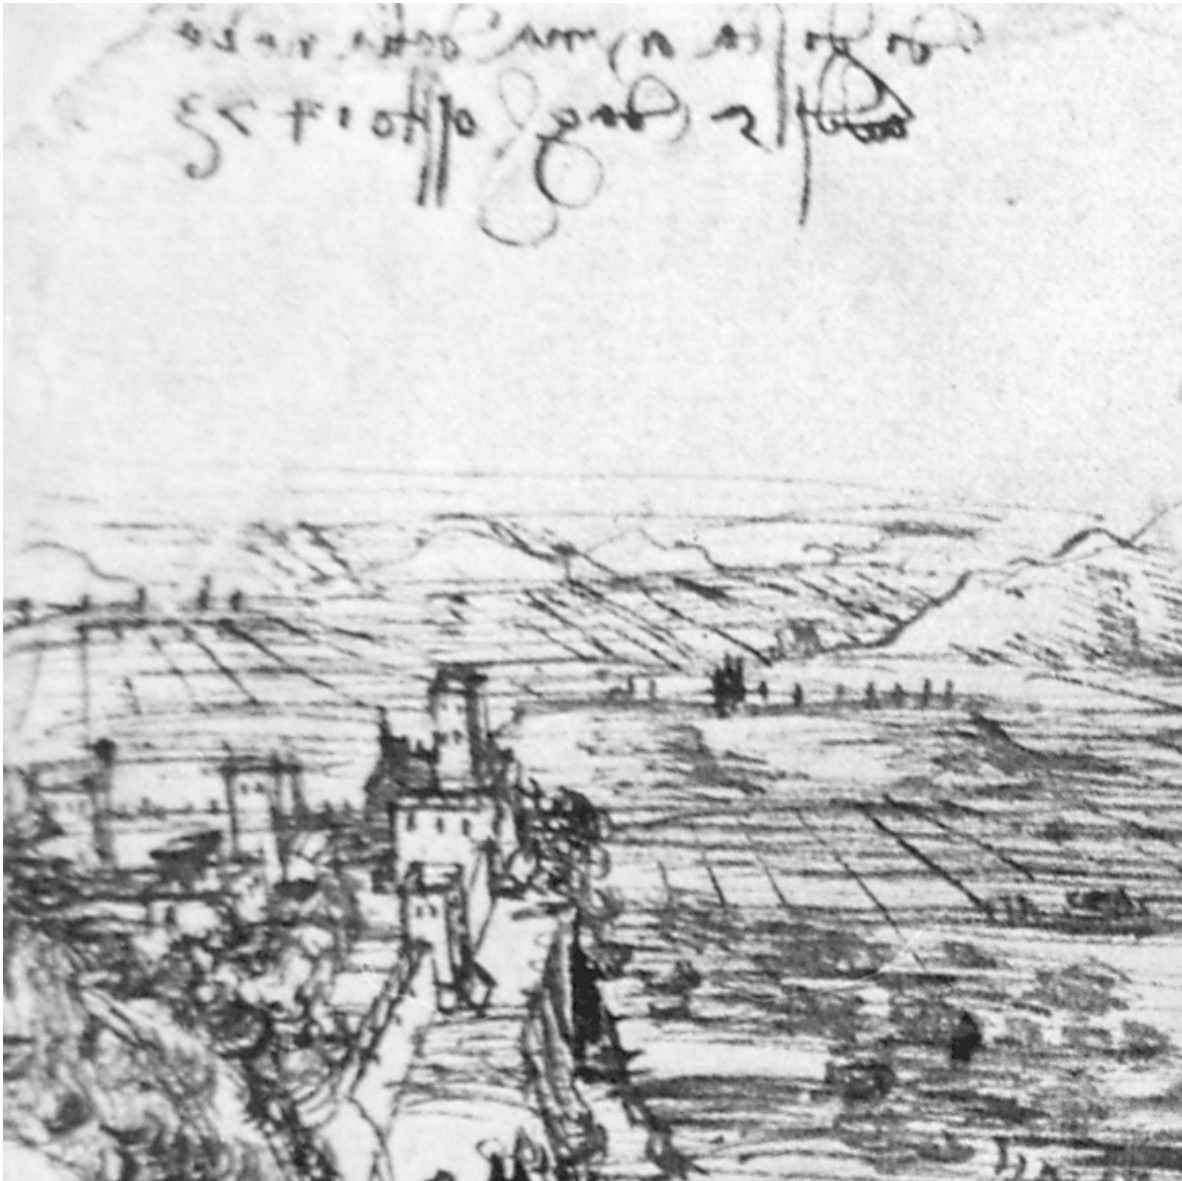 dj dj sta maria della neve
addj 5 daghossto 1473